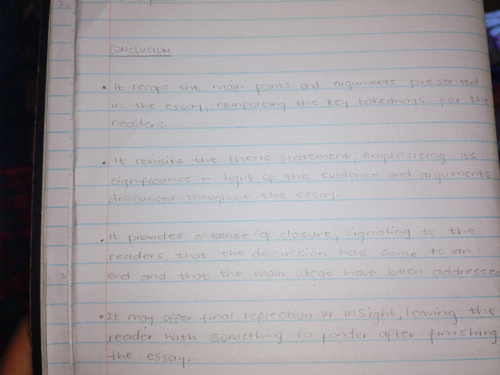 CONCLUSION
• It recaps the main points and arguments presented
in the essay, reinforcing the key takeaways for the
readers.
• It revisits the thesis statement, emphasizing its
significance in light of the evidence and arguments
discussed throughout the essay.
• It provides a sense of closure, signaling to the
readers that the discussion has come to an
end and that the main ideas have been addressed
• It may offer final reflection or insight, leaving the
reader with something to ponder after finishing
the essay.